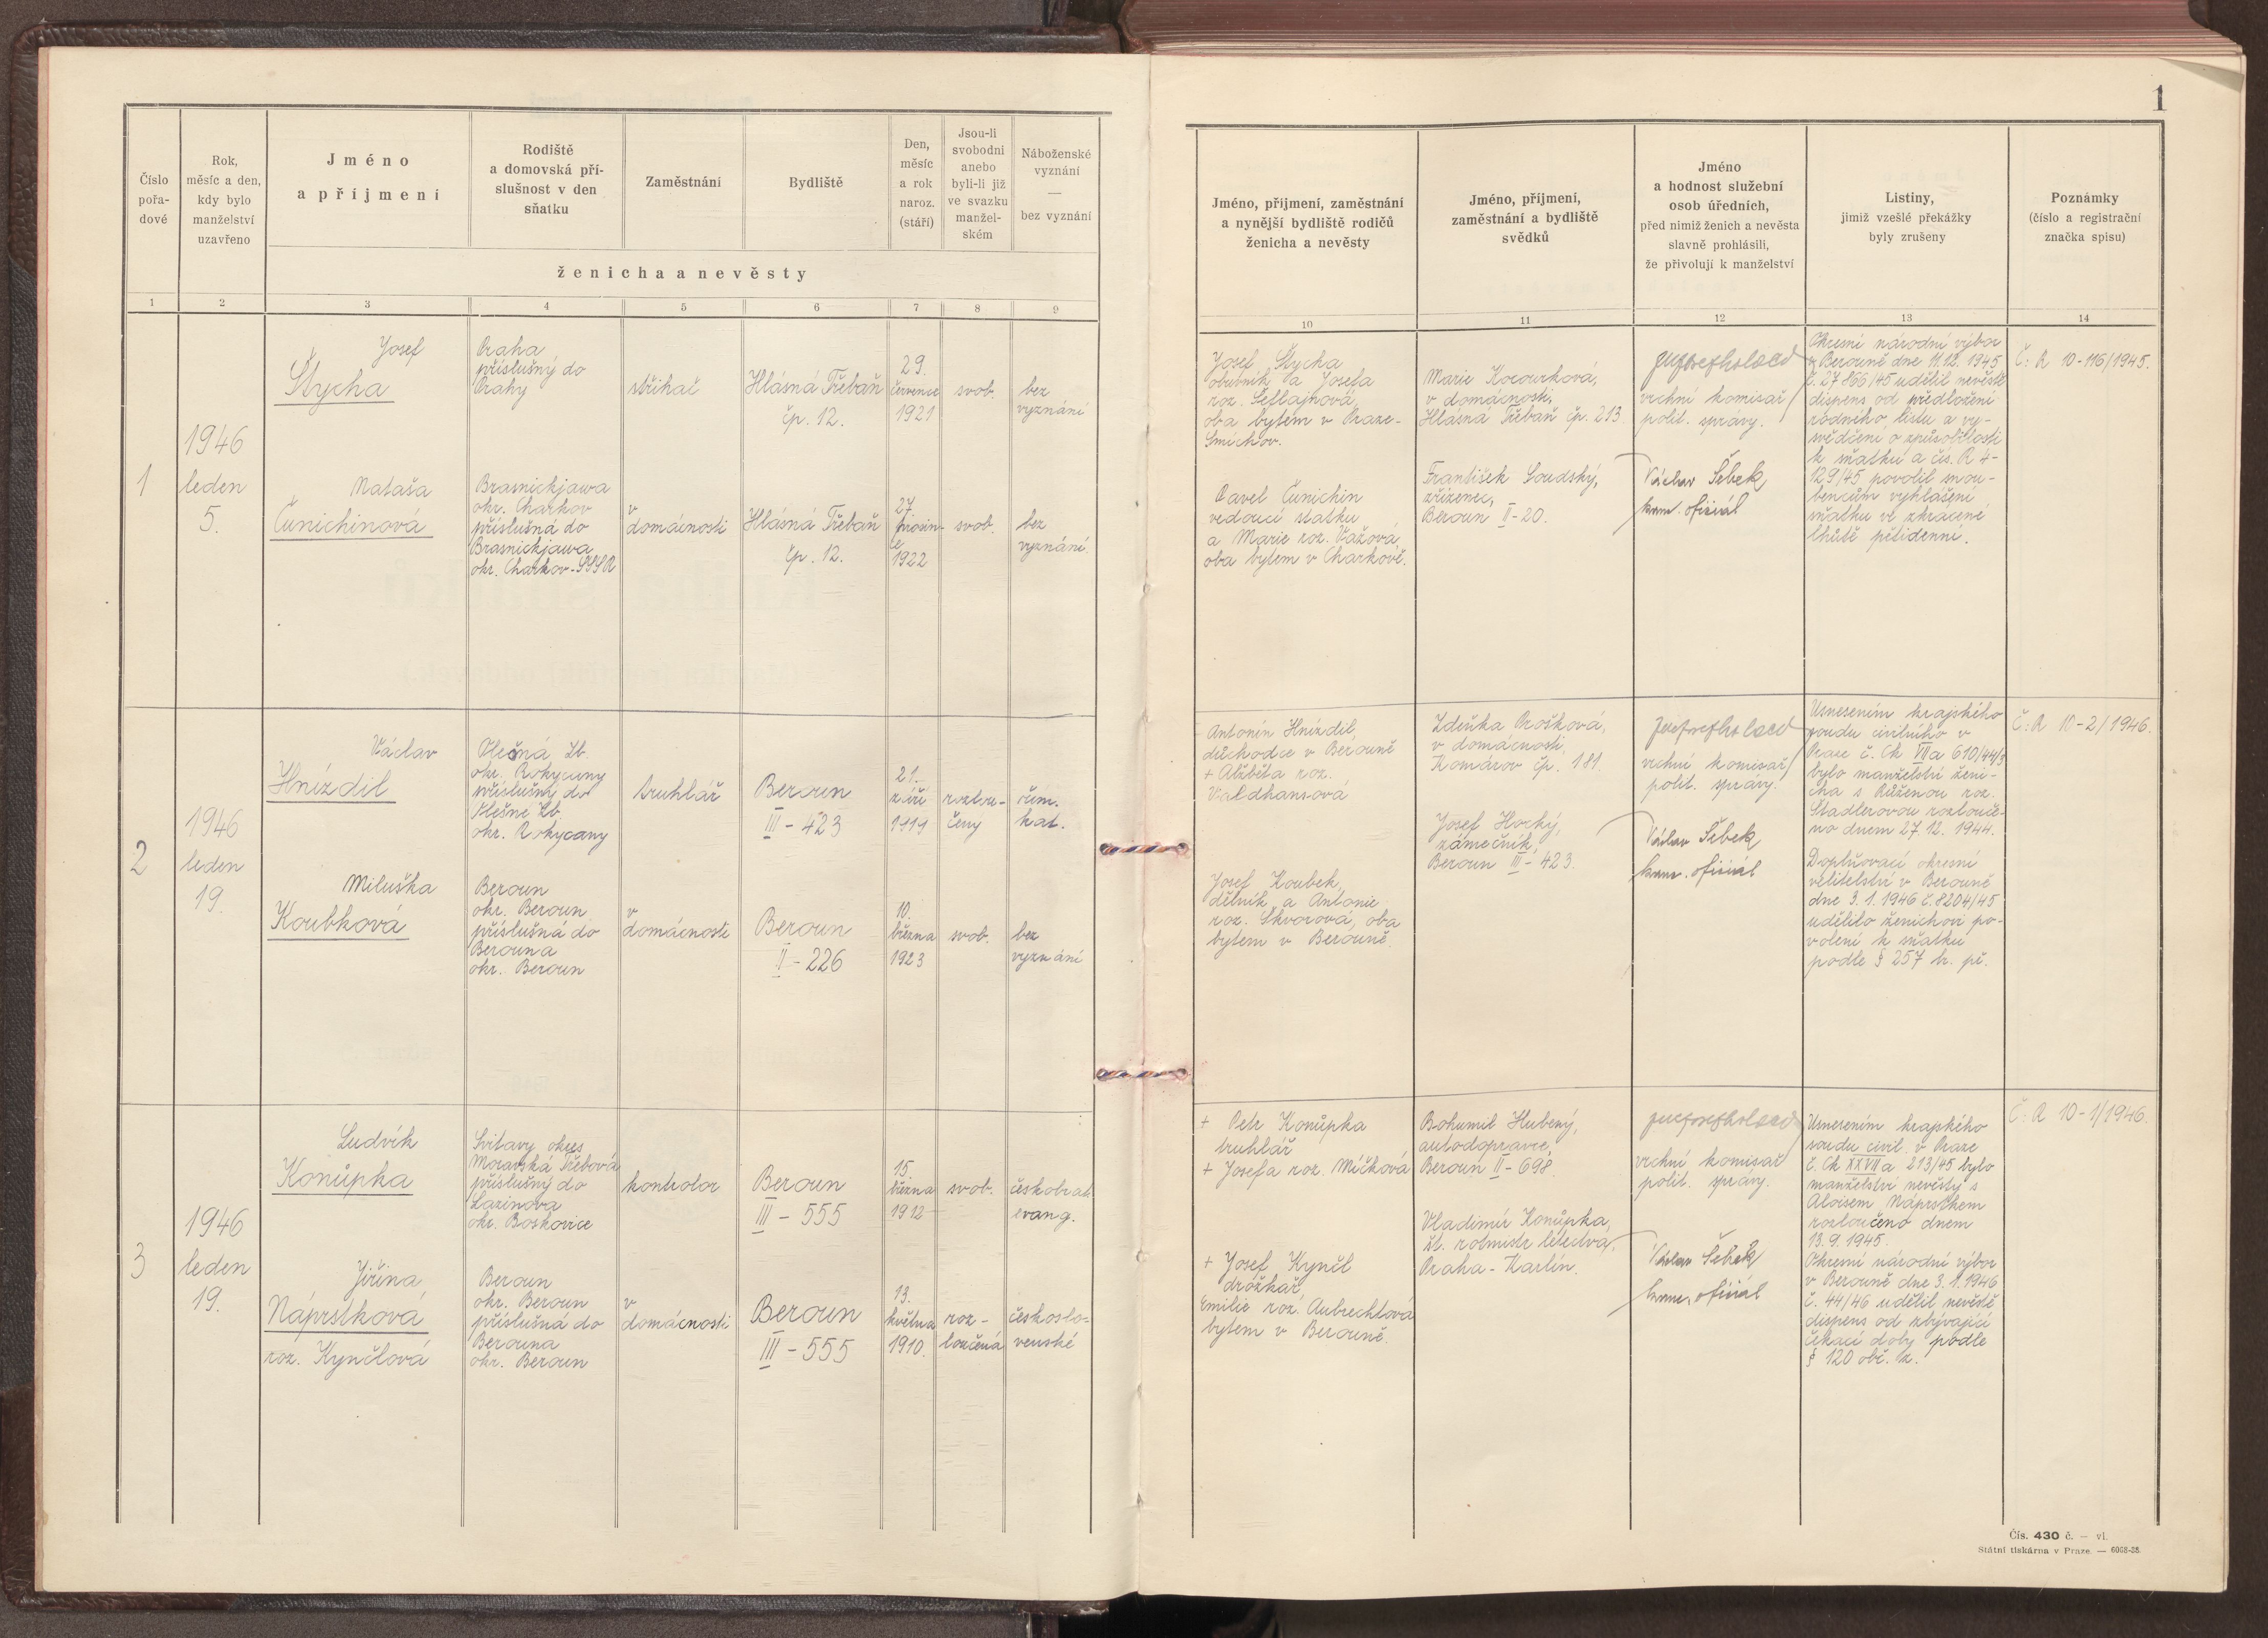 1
Číslo
pořa-
dové
Rok,
měsíc a den,
kdy bylo
manželství
uzavřeno
Jméno
a příjmení
Rodiště
a domovská pří-
slušnost v den
sňatku
Zaměstnání
Bydliště
Den,
měsíc
a rok
naroz.
(stáří)
Jsou-li
svobodni
anebo
byli-li již
ve svazku
manžel-
ském
Náboženské
vyznání
—
bez vyznání
ženicha a nevěsty
1 2 3 4 5 6 7 8 9
Jméno, příjmení, zaměstnání
a nynější bydliště rodičů
ženicha a nevěsty
Jméno, příjmení,
zaměstnání a bydliště
svědků
Jméno
a hodnost služební
osob úředních,
před nimiž ženich a nevěsta
slavně prohlásili,
že přivolují k manželství
Listiny,
jimiž vzešlé překážky
byly zrušeny
Poznámky
(číslo a registrační
značka spisu)
10 11 12 13 14
1
1946
leden
5.
Josef
Štycha
Praha
příslušný do
Prahy
střihač
Hlásná Třebaň
čp. 12.
29.
července
1921
svob.
bez
vyznání
Nataša
Čunichinová
Brasnickjawa
okr. Charkov
příslušná do
Brasnickjawa
okr. Charkov-SSSR
v
domácnosti
Hlásná Třebaň
čp. 12.
27.
prosin-
ce
1922
svob.
bez
vyznání.
Josef Štycha
obuvník a Josefa
roz.
oba bytem v Praze-
Smíchov.
Pavel Čunichin
vedoucí statku
a Marie roz. Važová
oba bytem v Charkově.
Marie Kocourková,
v domácnosti,
Hlásná Třebaň čp. 213.
František Soudský,
zřízenec,
Beroun II-20.
vrchní komisař
polit. správy.
Václav Šebek
kanc. oficiál
Okresní národní výbor
v Berouně dne 11.12. 1945
č. 27 866/45 udělil nevěstě
dispens od předložení
rodného listu a vy-
svědčení o způsobilosti
k sňatku a čís. R 4-
129/45 povolil snou-
bencům vyhlášení
sňatku ve zkrácené
lhůtě pětidenní.
Č: R 10-116/1945.
2
1946
leden
19.
Václav
Hnízdil
Olešná Zb.
okr. Rokycany
příslušný do
Olešné Zb.
okr. Rokycany
truhlář
Beroun
III - 423
21.
září
1919
rozlou-
čený
řím.
kat.
Miluška
Koubková
Beroun
okr. Beroun
příslušná do
Berouna
okr. Beroun
v
domácnosti
Beroun
II - 226
10.
března
1923
svob.
bez
vyznání
Antonín Hnízdil,
důchodce v Berouně
+ Alžběta roz.
Valdhansová
Josef Koubek,
dělník a Antonie
roz. Škvorová, oba
bytem v Berouně.
Zdeňka Prošková,
v domácnosti,
Komárov čp. 181.
Josef Horký,
zámečník,
Beroun III - 423.
vrchní komisař
polit. správy.
Václav Šebek
kanc. oficiál
Usnesením krajského
soudu civilního v
Praze č. Ck VIIa 610/44/3
bylo manželství ženi-
cha s Růženou roz.
Stadlerovou rozlouče-
no dnem 27. 12. 1944.
Doplňovací okresní
velitelství v Berouně
dne 3. 1. 1946 č. 8204/45
udělilo ženichovi po-
volení k sňatku
podle § 257 br. př.
Č: R 10-2/1946.
3
1946
leden
19.
Ludvík
Konůpka
Svitavy okres
Moravská Třebová
příslušný do
Lazinova
okr. Boskovice
kontrolor
Beroun
III - 555
15.
března
1912
svob.
českobrat.
evang.
Jiřina
Náprstková
roz. Kynčlová
Beroun
okr. Beroun
příslušná do
Berouna
okr. Beroun
v
domácnosti
Beroun
III - 555
13.
května
1910.
roz-
loučená
českoslo-
venské
+ Petr Konůpka
truhlář
+ Josefa roz. Míčková
+ Josef Kynčl
drožkař,
Emilie roz. Aubrechtová
bytem v Berouně.
Bohumil Hubený,
autodopravce,
Beroun II - 698.
Vladimír Konůpka,
št. rotmistr letectva,
Praha - Karlín.
vrchní komisař
polit. správy.
Václav Šebek
kanc. oficiál
Usnesením krajského
soudu civil. v Praze
č. Ck XXVIIa 213/45 bylo
manželství nevěsty s
Aloisem Náprstkem
rozloučeno dnem
13. 9. 1945.
Okresní národní výbor
v Berouně dne 3. 1. 1946
č. 44/46 udělil nevěstě
dispens od zbývající
čekací doby podle
§ 120 obč. zk.
Č: R 10-1/1946.
Čís. 430 č. — vl.
Státní tiskárna v Praze. — 6068-38.